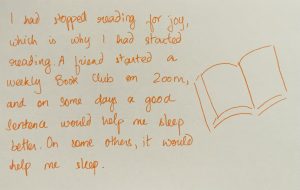 I had stopped reading for joy,
which is why I had started
reading. A friend started a
weekly Book Club on Zoom,
and on some days a good
sentence would help me sleep
better. On some others, it would
help me sleep.